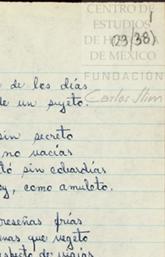 CENTRO DE
ESTUDIOS
DE H
DE MÉXICO
FUNDACIÓN
Carlos Slim
(23/38)
de los días
de un sujeto.
sin secreto
no vacías
sin cobardías
como amuleto.
reseñas frías
que vegeto